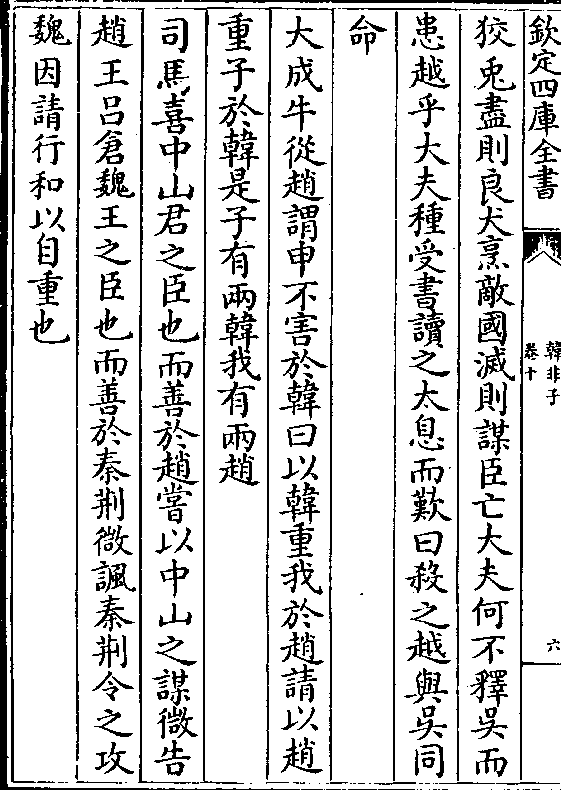 欽定四庫全書
韓非子
卷十
六
狡兎盡則良犬烹敵國滅則謀臣亡大夫何不釋吳而
患越乎大夫種受書讀之太息而歎曰殺之越與吳同
命
大成牛從趙謂申不害於韓曰以韓重我於趙請以趙
重子於韓是子有兩韓我有兩趙
司馬喜中山君之臣也而善於趙嘗以中山之謀微告
趙王吕倉魏王之臣也而善於秦荆微諷秦荆令之攻
魏因請行和以自重也